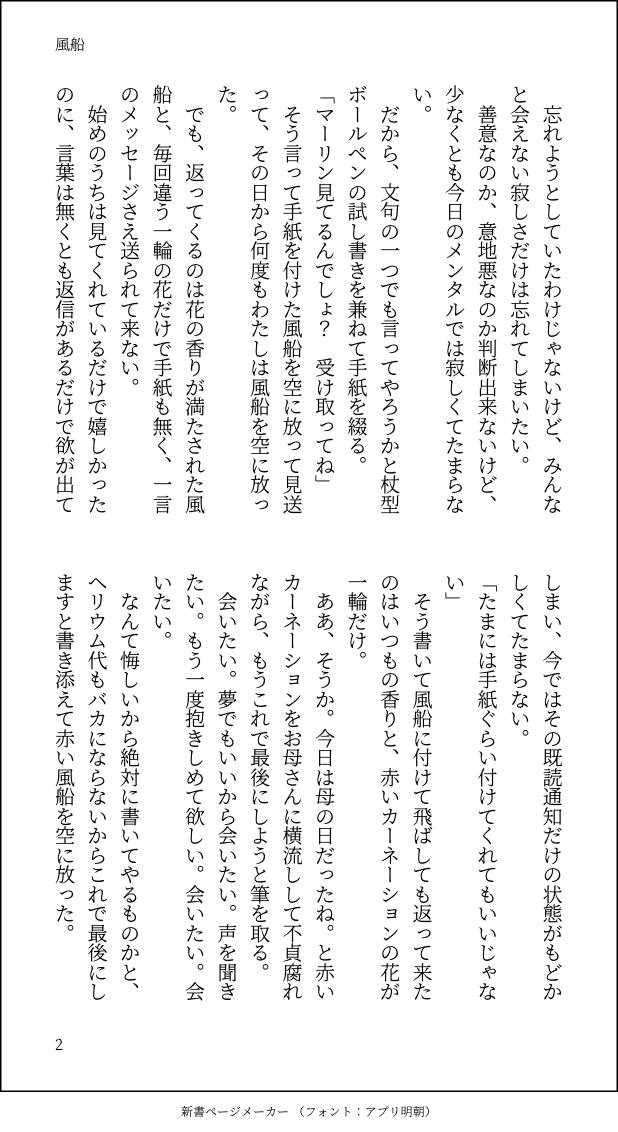 風船
　忘れようとしていたわけじゃないけど、みんな
と会えない寂しさだけは忘れてしまいたい。
　善意なのか、意地悪なのか判断出来ないけど、
少なくとも今日のメンタルでは寂しくてたまらな
い。
　だから、文句の一つでも言ってやろうかと杖型
ボールペンの試し書きを兼ねて手紙を綴る。
「マーリン見てるんでしょ？　受け取ってね」
　そう言って手紙を付けた風船を空に放って見送
って、その日から何度もわたしは風船を空に放っ
た。
　でも、返ってくるのは花の香りが満たされた風
船と、毎回違う一輪の花だけで手紙も無く、一言
のメッセージさえ送られて来ない。
　始めのうちは見てくれているだけで嬉しかった
のに、言葉は無くとも返信があるだけで欲が出て
しまい、今ではその既読通知だけの状態がもどか
しくてたまらない。
「たまには手紙ぐらい付けてくれてもいいじゃな
い」
　そう書いて風船に付けて飛ばしても返って来た
のはいつもの香りと、赤いカーネーションの花が
一輪だけ。
　ああ、そうか。今日は母の日だったね。と赤い
カーネーションをお母さんに横流しして不貞腐れ
ながら、もうこれで最後にしようと筆を取る。
　会いたい。夢でもいいから会いたい。声を聞き
たい。もう一度抱きしめて欲しい。会いたい。会
いたい。
　なんて悔しいから絶対に書いてやるものかと、
ヘリウム代もバカにならないからこれで最後にし
ますと書き添えて赤い風船を空に放った。
2
新書ページメーカー （フォント：アプリ明朝）